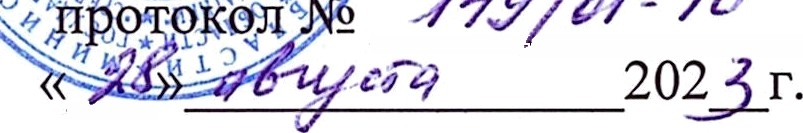 протокол № 179/01-10
«28» августа 2023 г.